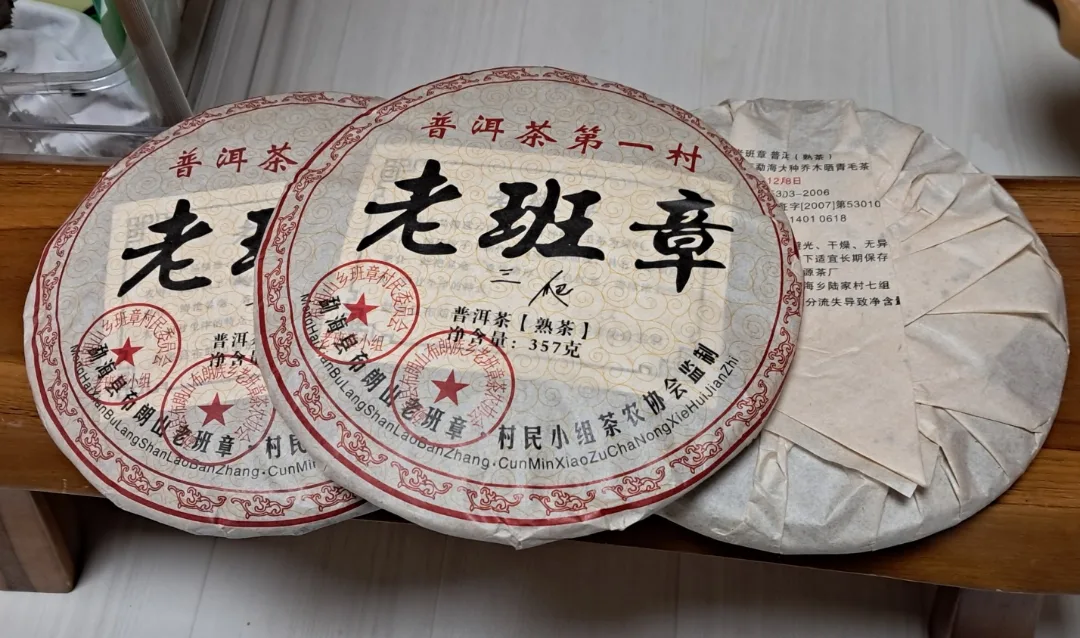 普洱茶
老班
普洱
净含
勐海县布朗山老班章·村民
HaiXianBuLangShanLaoBanZhang·CunMin
普洱茶第一村
老班章
三爬
普洱茶【熟茶】
净含量：357克
勐海县布朗山老班章·村民小组茶农协会监制
BuLangShanLaoBanZhang·CunMinXiaoZuChaNongXieHuiJianZhi
老班章 普洱（熟茶）
勐海大种乔木晒青毛茶
12月8日
5303-2006
证字[2007]第53010
1401 0618
避光、干燥、无异
下适宜长期保存
源茶厂
海乡陆家村七组
分流失导致净含量